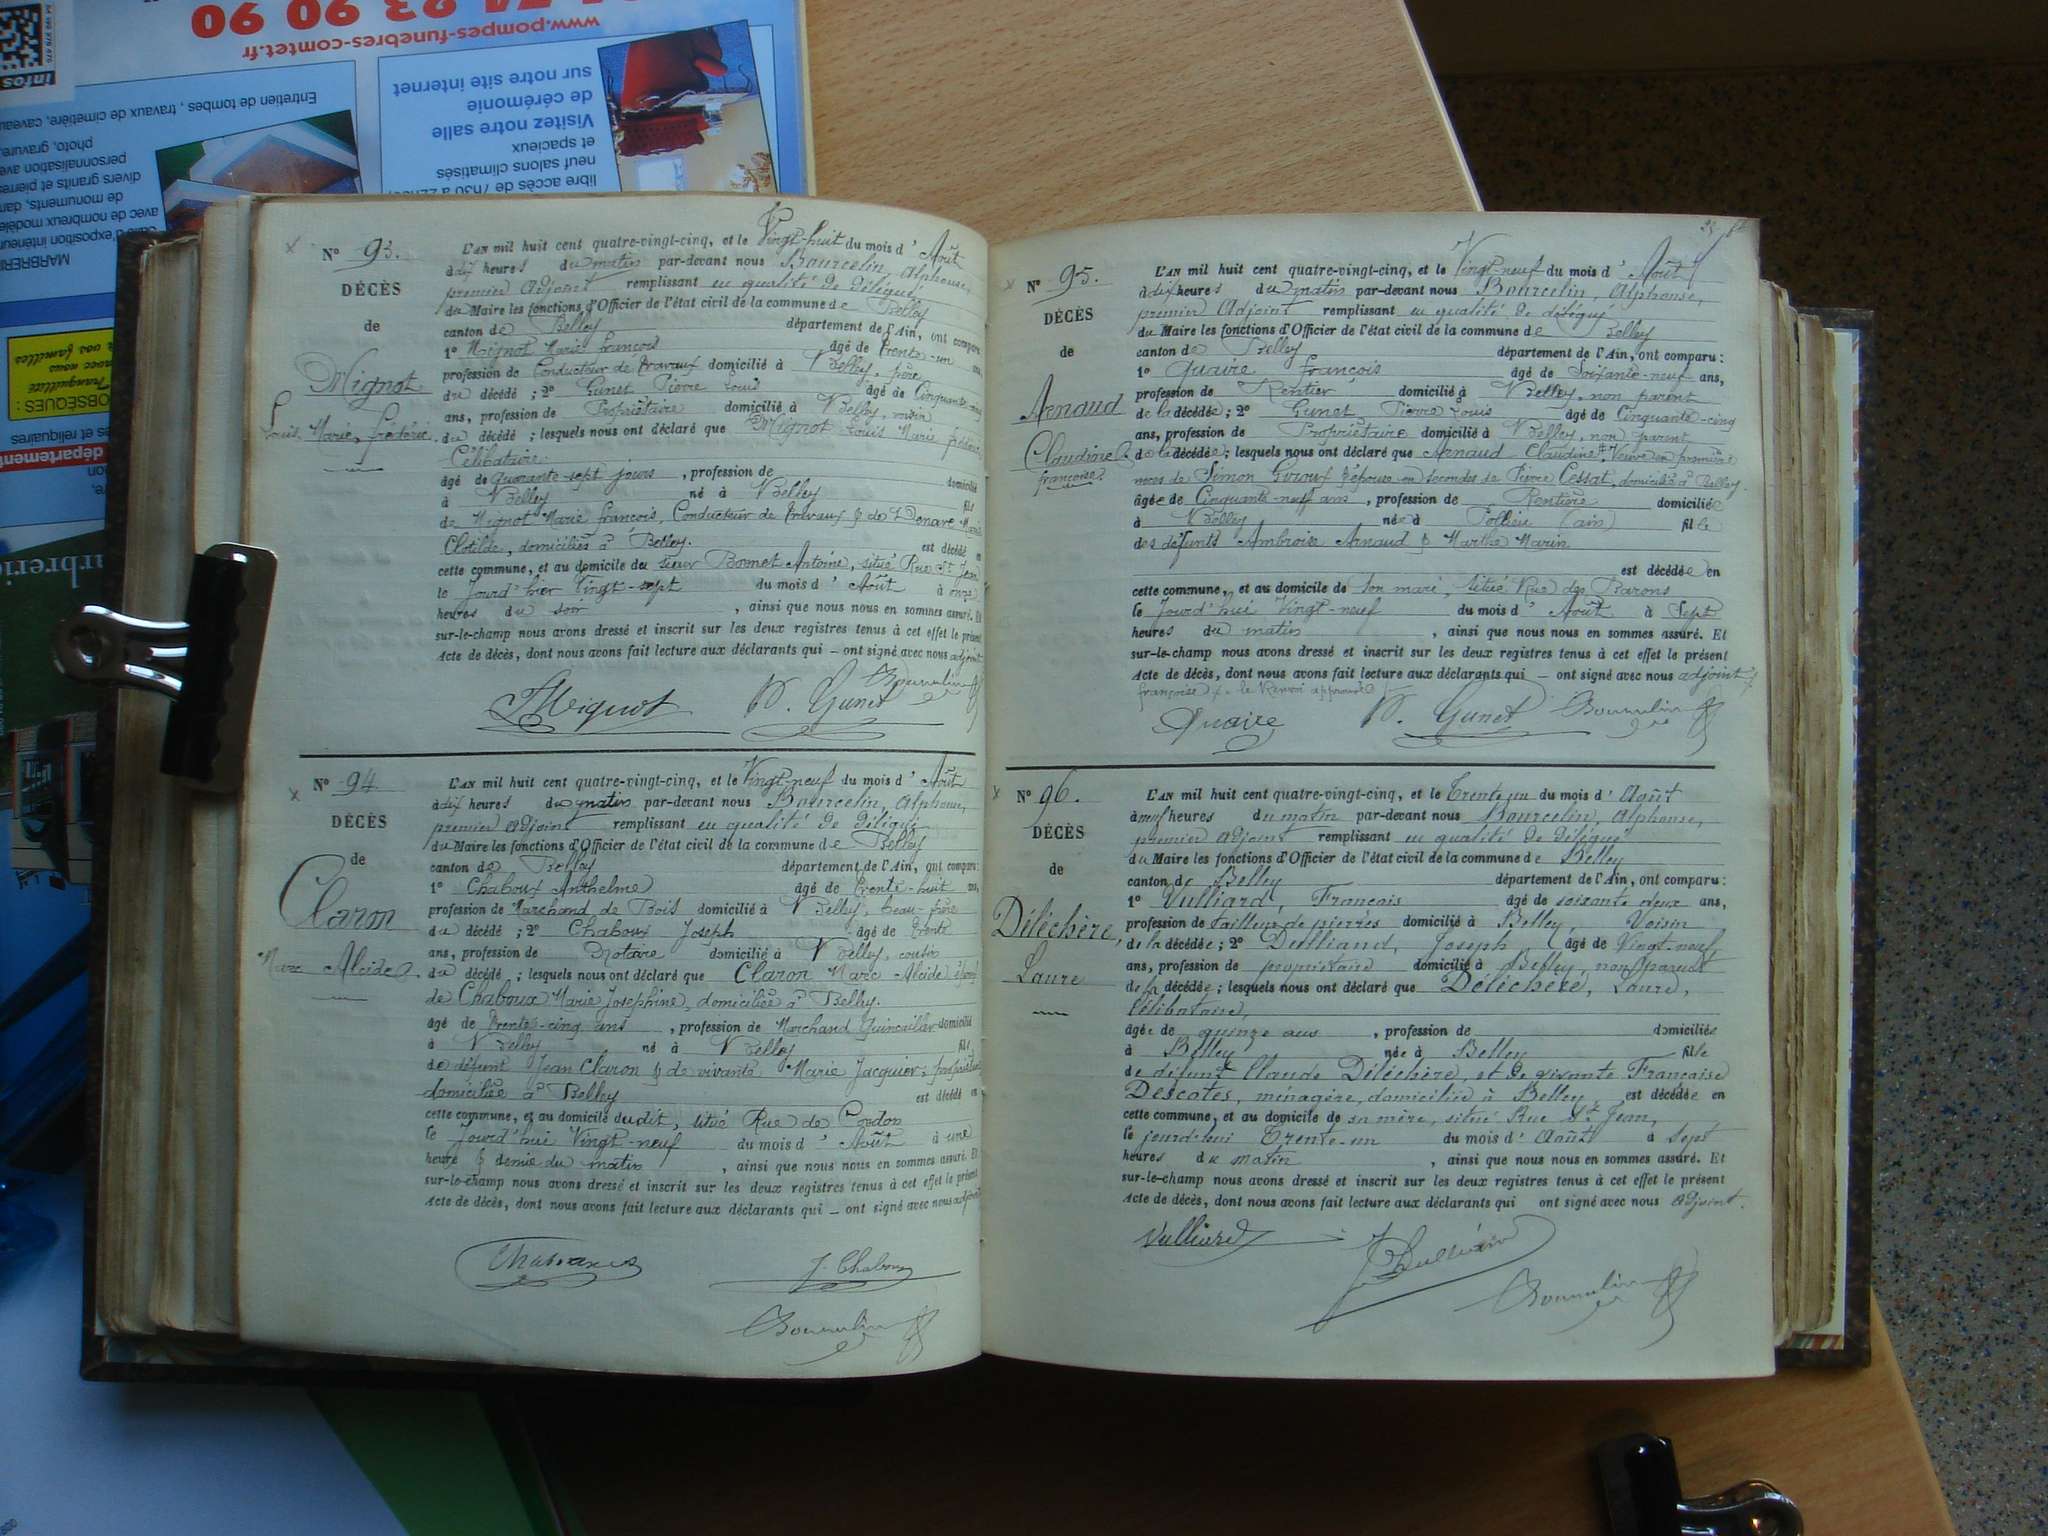 04 74 23 90 90
www.pompes-funebres-comtet.fr
infos
Entretien de tombes, travaux de cimetière, caveaux
photo, gravure,
personnalisation avec
divers granits et pierres
de monuments, dans
avec de nombreux modèles
d'exposition intérieur
MARBRERIE
Visitez notre salle
de cérémonie
sur notre site internet
libre accès de 7h30 à
neuf salons climatisés
et spacieux
OBSÈQUES :
Tranquillité
vos familles
et reliquaires
département
N° 93.
DÉCÈS
de
Mignot
Louis Marie, frédéric.
L'AN mil huit cent quatre-vingt-cinq, et le Vingt-huit du mois d' Août
à dix heures du matin par-devant nous Bourcelin, Alphonse,
premier Adjoint remplissant en qualité de délégué
du Maire les fonctions d'Officier de l'état civil de la commune de Belley
canton de Belley département de l'Ain, ont comparu
1° Mignot Marie françois âgé de trente-un ans,
profession de Conducteur de travaux domicilié à Belley, père
du décédé ; 2° Gunet Pierre Louis âgé de Cinquante-cinq
ans, profession de Propriétaire domicilié à Belley, voisin
du décédé ; lesquels nous ont déclaré que Mignot Louis Marie frédéric
Célibataire.
âgé de quarante-sept jours , profession de domicilié
à Belley né à Belley fils
de Mignot Marie françois, Conducteur de travaux & de Marie
Clotilde, domiciliés à Belley. est décédé en
cette commune, et au domicile du sieur Bonnet Antoine, situé Rue St Jean
le Jourd'hier Vingt-sept du mois d' Août à onze
heures du soir , ainsi que nous nous en sommes assuré. Et
sur-le-champ nous avons dressé et inscrit sur les deux registres tenus à cet effet le présent
acte de décès, dont nous avons fait lecture aux déclarants qui — ont signé avec nous adjoint
Mignot P. Gunet Bourcelin
N° 94.
DÉCÈS
de
Claron
Marc Alcide.
L'AN mil huit cent quatre-vingt-cinq, et le Vingt-neuf du mois d' Août
à dix heures du matin par-devant nous Bourcelin, Alphonse,
premier adjoint remplissant en qualité de délégué
du Maire les fonctions d'Officier de l'état civil de la commune de Belley
canton de Belley département de l'Ain, ont comparu:
1° Chaboux Anthelme âgé de trente-huit ans,
profession de Marchand de Bois domicilié à Belley, beau-frère
du décédé ; 2° Chaboux Joseph âgé de trente
ans, profession de Notaire domicilié à Belley, cousin
du décédé ; lesquels nous ont déclaré que Claron Marc Alcide époux
de Chaboux Marie Josephine, domiciliée à Belley.
âgé de trente-cinq ans , profession de Marchand Quincailler domicilié
à Belley né à Belley fils
de défunt Jean Claron & de vivante Marie Jacquier,
domiciliée à Belley est décédé en
cette commune, et au domicile dudit, situé Rue de Cordon
le Jourd'hui Vingt-neuf du mois d' Août à une
heure & demie du matin , ainsi que nous nous en sommes assuré. Et
sur-le-champ nous avons dressé et inscrit sur les deux registres tenus à cet effet le présent
acte de décès, dont nous avons fait lecture aux déclarants qui — ont signé avec nous adjoint
J. Chaboux
Bourcelin
N° 95.
DÉCÈS
de
Arnaud
Claudine
françoise.
L'AN mil huit cent quatre-vingt-cinq, et le Vingt-neuf du mois d' Août
à dix heures du matin par-devant nous Bourcelin, Alphonse,
premier Adjoint remplissant en qualité de délégué
du Maire les fonctions d'Officier de l'état civil de la commune de Belley
canton de Belley département de l'Ain, ont comparu :
1° Quaire françois âgé de Soixante-neuf ans,
profession de Rentier domicilié à Belley, non parent
de la décédée ; 2° Gunet Pierre Louis âgé de Cinquante-cinq
ans, profession de Propriétaire domicilié à Belley, non parent
de la décédée ; lesquels nous ont déclaré que Arnaud Claudine Veuve en premières
noces de Simon & épouse en secondes de Pierre Cessat, domicilié à Belley.
âgée de Cinquante-neuf ans , profession de Rentière domiciliée
à Belley née à Pollieu (ain) fille
des défunts Ambroise Arnaud & Marthe Marin
est décédée en
cette commune, et au domicile de son mari, situé Rue des Barons
le Jourd'hui Vingt-neuf du mois d' Août à Sept
heures du matin , ainsi que nous nous en sommes assuré. Et
sur-le-champ nous avons dressé et inscrit sur les deux registres tenus à cet effet le présent
acte de décès, dont nous avons fait lecture aux déclarants qui — ont signé avec nous adjoint
françoise le Renvoi approuvé
Quaire P. Gunet Bourcelin
N° 96.
DÉCÈS
de
Déléchère,
Laure
L'AN mil huit cent quatre-vingt-cinq, et le Trente un du mois d' Août
à neuf heures du matin par-devant nous Bourcelin, Alphonse,
premier adjoint remplissant en qualité de délégué
du Maire les fonctions d'Officier de l'état civil de la commune de Belley
canton de Belley département de l'Ain, ont comparu :
1° Vulliard, François âgé de soixante deux ans,
profession de tailleur de pierres domicilié à Belley, Voisin
de la décédée ; 2° Joseph âgé de Vingt-neuf
ans, profession de propriétaire domicilié à Belley, non parent
de la décédée ; lesquels nous ont déclaré que Déléchère, Laure,
Célibataire,
âgée de quinze ans , profession de domiciliée
à Belley née à Belley fille
de défunt Claude Déléchère, et de vivante Françoise
Descotes, ménagère, domiciliée à Belley, est décédée en
cette commune, et au domicile de sa mère, situé Rue St Jean,
le jourd'hui Trente-un du mois d' Août à sept
heures du matin , ainsi que nous nous en sommes assuré. Et
sur-le-champ nous avons dressé et inscrit sur les deux registres tenus à cet effet le présent
acte de décès, dont nous avons fait lecture aux déclarants qui ont signé avec nous adjoint.
Vulliard
Bourcelin